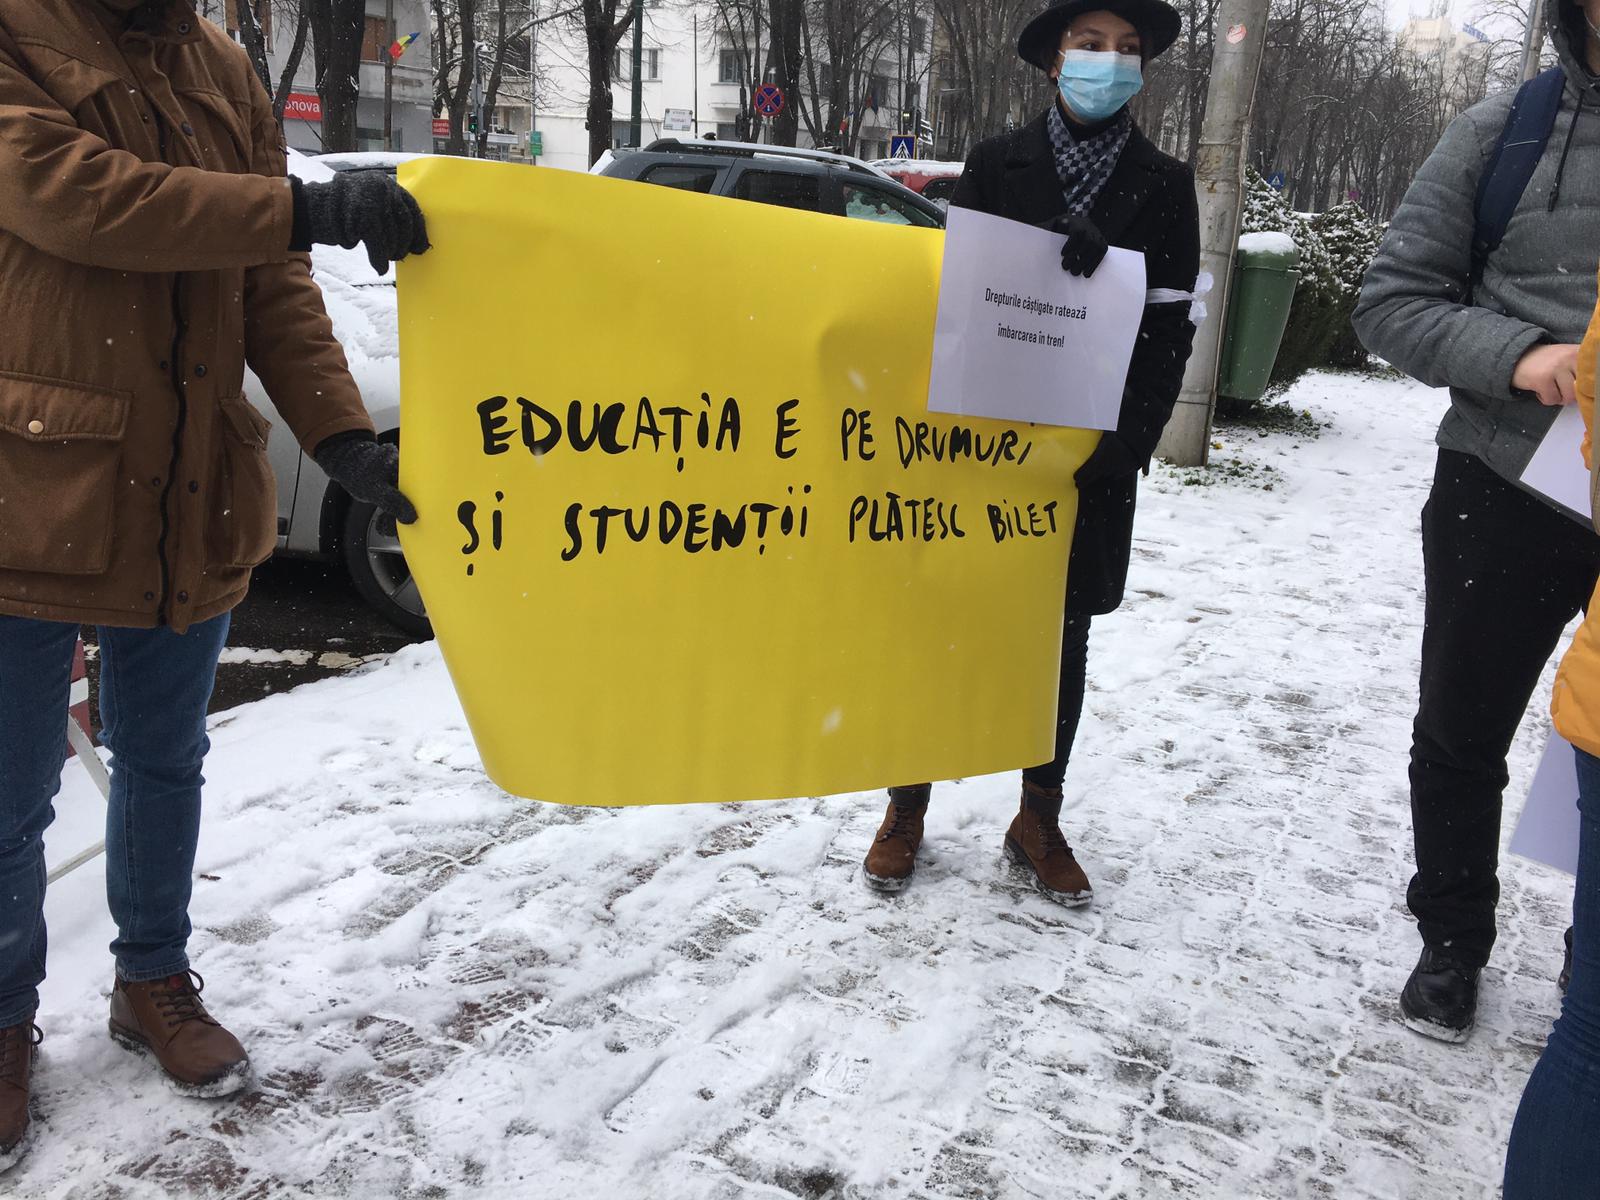 EDUCAȚIA E PE DRUMURI
ȘI STUDENȚII PLĂTESC BILET
Drepturile câștigate ratează
îmbarcarea în tren!